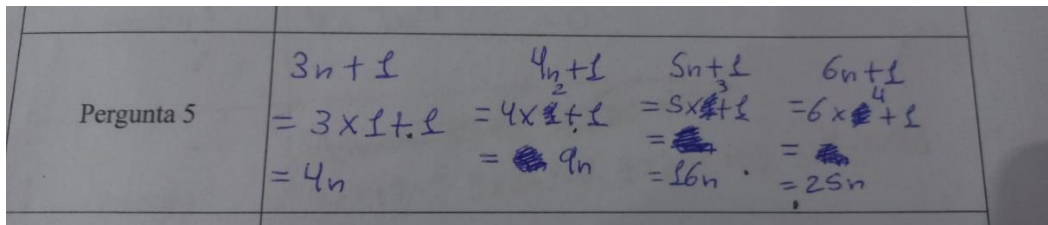 Pergunta 5
3n+1
= 3×1+1
= 4n
4n+1
= 4×2+1
= 9n
5n+1
= 5×3+1
=
= 16n
6n+1
= 6×4+1
=
= 25n